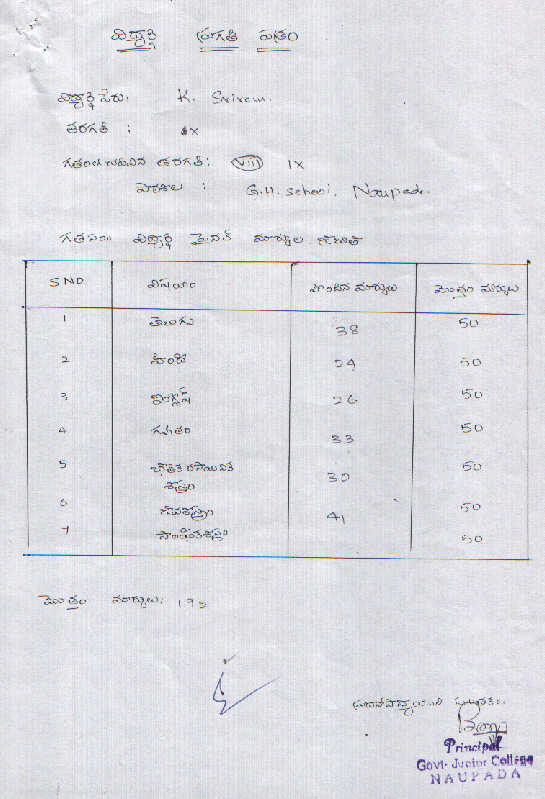 విద్యార్థి ప్రగతి పత్రం
విద్యార్థి పేరు: K. Sriram.
తరగతి : IX
తరగతి: VIII IX
పాఠశాల : G.H. School, Naupada.
గత విద్యార్థి మార్కుల
S NO విషయం మార్కులు మొత్తం మార్కులు
1 తెలుగు 38 50
2 హిందీ 24 50
3 ఇంగ్లీష్ 26 50
4 గణితం 33 50
5 భౌతిక రసాయనిక శాస్త్రం 50
6 జీవశాస్త్రం 41 50
7 సాంఘికశాస్త్రం 50
మొత్తం మార్కులు: 19
Principal
Govt. Junior College
NAUPADA